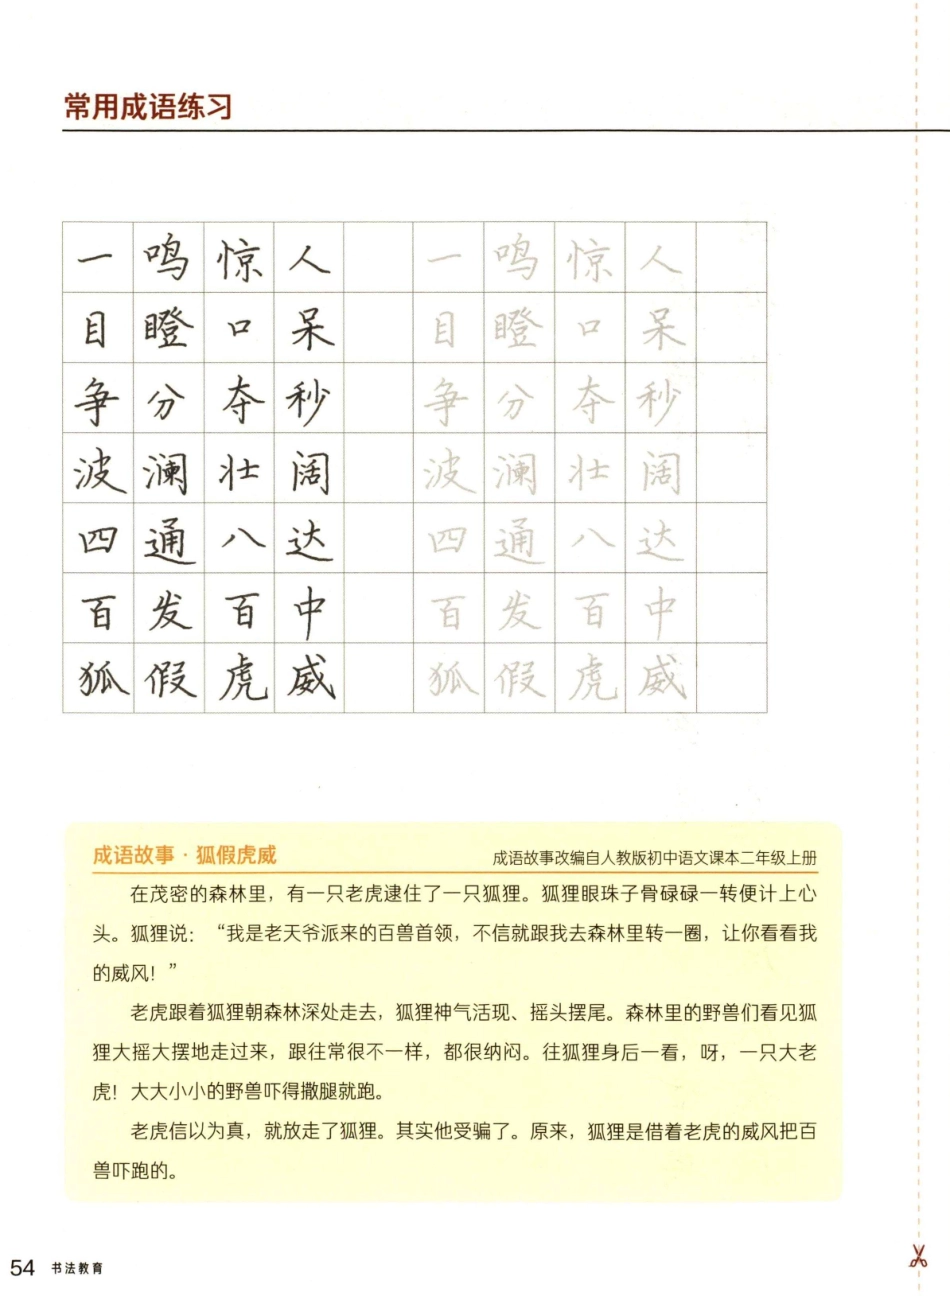 常用成语练习
一鸣惊人 一鸣惊人
目瞪口呆 目瞪口呆
争分夺秒 争分夺秒
波澜壮阔 波澜壮阔
四通八达 四通八达
百发百中 百发百中
狐假虎威 狐假虎威
成语故事·狐假虎威 成语故事改编自人教版初中语文课本二年级上册
在茂密的森林里，有一只老虎逮住了一只狐狸。狐狸眼珠子骨碌碌一转便计上心
头。狐狸说：“我是老天爷派来的百兽首领，不信就跟我去森林里转一圈，让你看看我
的威风！”
老虎跟着狐狸朝森林深处走去，狐狸神气活现、摇头摆尾。森林里的野兽们看见狐
狸大摇大摆地走过来，跟往常很不一样，都很纳闷。往狐狸身后一看，呀，一只大老
虎！大大小小的野兽吓得撒腿就跑。
老虎信以为真，就放走了狐狸。其实他受骗了。原来，狐狸是借着老虎的威风把百
兽吓跑的。
54 书法教育